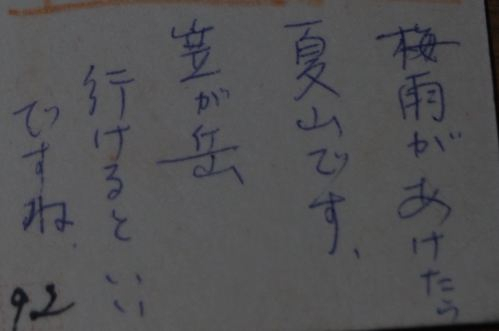 梅雨があけたら
夏山です、
笠が岳
行けるといい
ですね
92